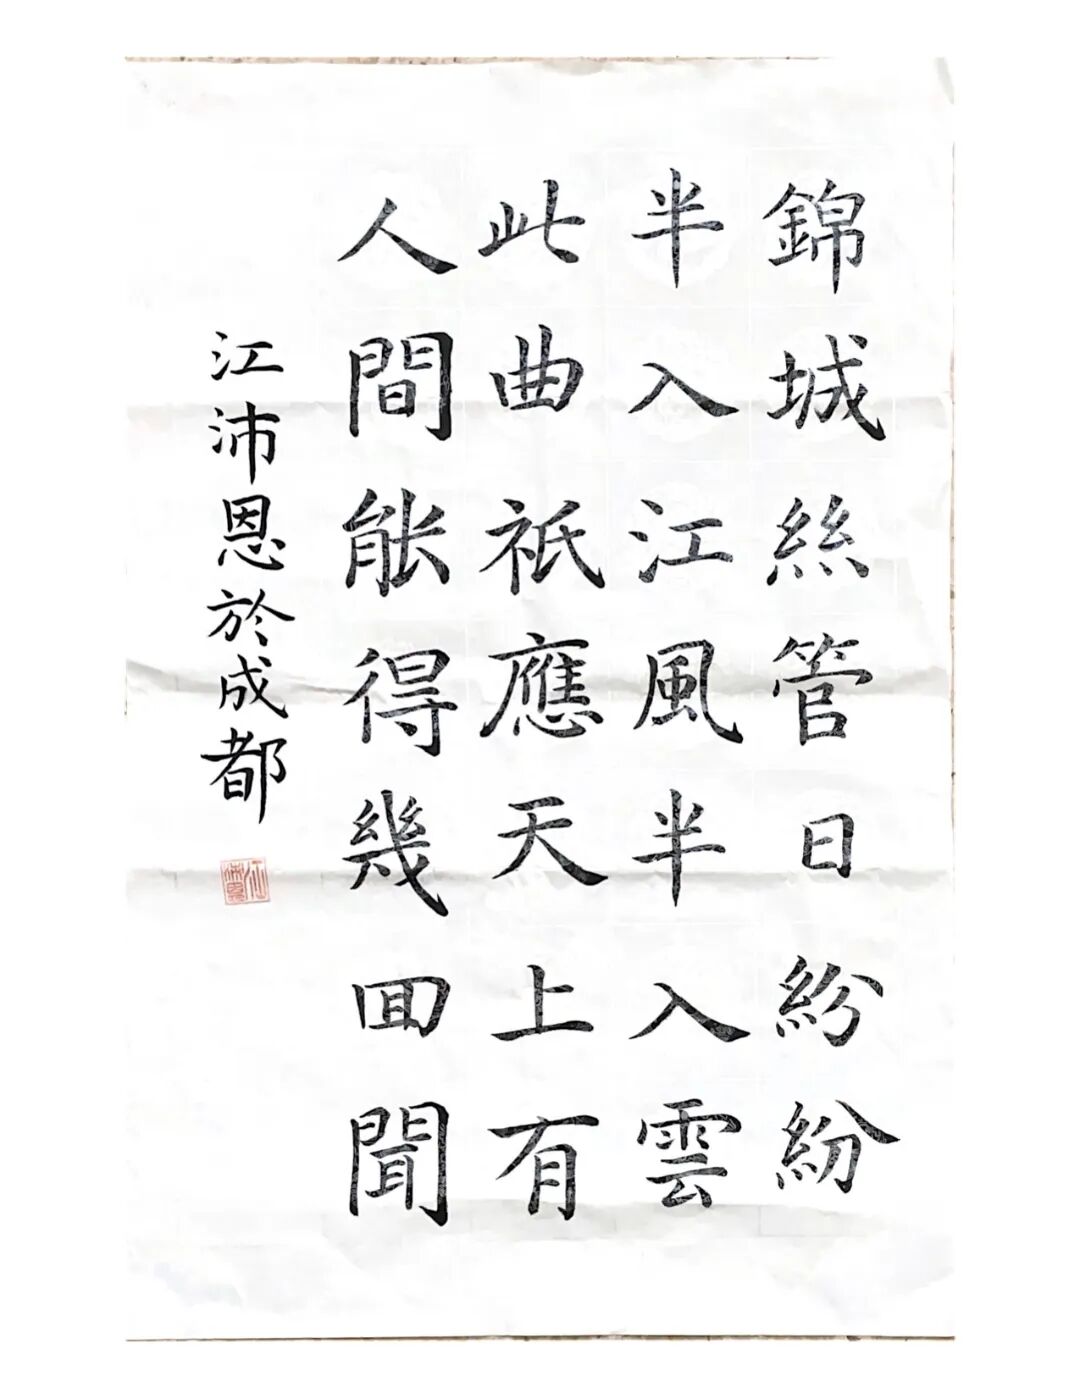 錦城絲管日紛紛
半入江風半入雲
此曲祇應天上有
人間能得幾回聞
江沛恩於成都
江沛恩